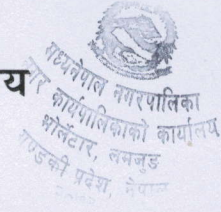 य
मध्यनेपाल नगरपालिका
नगर कार्यपालिकाको कार्यालय
भोर्लेटार, लमजुङ
गण्डकी प्रदेश, नेपाल